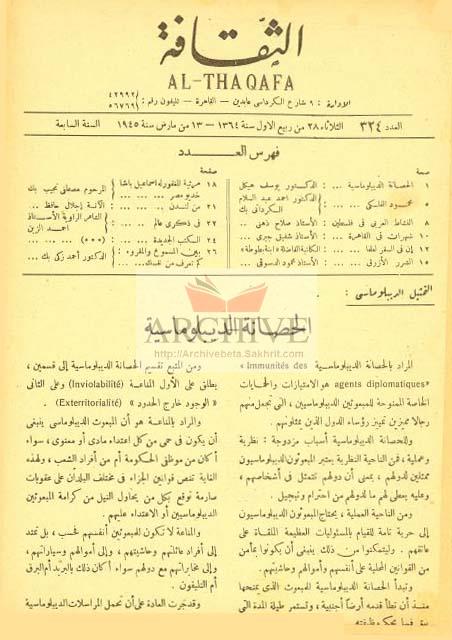 الثقافة
AL-THAQAFA
الادارة : ٩ شارع الكرداسى عابدين – القاهرة – تليفون رقم : ٤٢٩٩٢ / ٥٦٧٦٩
العدد ٣٢٤ الثلاثاء ٢٨ من ربيع الاول سنة ١٣٦٤ – ١٣ من مارس سنة ١٩٤٥ السنة السابعة
فهرس العدد
صفحة
١ الحصانة الدبلوماسية ... : الدكتور يوسف هيكل
٥ محمود الفلكى ... ... : الدكتور احمد عبد السلام الكردانى بك
٨ النشاط العربى فى فلسطين : الأستاذ صلاح ذهنى ..
١٠ شهريات فى القاهرة ... : الأستاذ شفيق جبرى ..
١٢ إن فى السفر لعلما ... : الكاتبة الفاضلة « ابنة بطوطة »
١٥ الشرر الأزرق ... : الأستاذ محمود الدسوقى ..
صفحة
١٨ مرثية للمغفور له اسماعيل باشا خديو مصر ... المرحوم مصطفى نجيب بك
٢١ من لندن ... الآنسة إجلال حافظ ..
٢٢ فى ذكرى عالم ... الشاعر الراوية الأستاذ احمد الزين
٢٤ الكتب الجديدة ... (٠٠٠)
٢٦ بين المسموع والمقروء : كم تعرف من نفسك... الدكتور أحمد زكى بك
التمثيل الدبلوماسى :
الحصانة الدبلوماسية
ARCHIVE
http://Archivebeta.Sakhrit.com
المراد بالحصانة الدبلوماسية « Immunités des
agents diplomatiques» هو الامتيازات والحمايات
الخاصة الممنوحة للمبعوثين الدبلوماسيين ، التى تجعل منهم
رجالا مميزين تميز رؤساء الدول الذين يمثلونهم .
وللحصانة الدبلوماسية أسباب مزدوجة : نظرية
وعملية ، فمن الناحية النظرية يعتبر المبعوثون الدبلوماسيون
ممثلين لدولهم ، بمعنى أن دولهم تتمثل فى أشخاصهم ،
وعليه يعطى لهم ما لدولهم من احترام وتبجيل .
ومن الناحية العملية ، يحتاج المبعوثون الدبلوماسيون
إلى حرية تامة للقيام بالمسئوليات العظيمة الملقاة على
عاتقهم . وليتمكنوا من ذلك ينبغى أن يكونوا بمأمن
من القوانين المحلية على أنفسهم وأموالهم وحاشيتهم .
وتبدأ الحصانة الدبلوماسية الذى يمنحها
منذ أن تطأ قدمه أرضا أجنبية ، وتستمر طيلة المدة التى
ومن المتبع تقسيم الحصانة الدبلوماسية إلى قسمين ،
يطلق على الأول المناعة (Inviolabilité) وعلى الثانى
« الوجود خارج الحدود » (Exterritorialité)
والمراد بالمناعة هو أن المبعوث الدبلوماسى ينبغى
أن يكون فى حمى من كل اعتداء مادى أو معنوى ، سواء
أكان من موظفى الحكومة أم من أفراد الشعب ، ولهذه
الغاية تنص قوانين الجزاء فى مختلف البلدان على عقوبات
صارمة توقع بكل من يحاول النيل من كرامة المبعوثين
الدبلوماسيين أو الاعتداء عليهم .
والمناعة لا تكون للمبعوثين أنفسهم فحسب ، بل تمتد
إلى أفراد عائلتهم وحاشيتهم ، وإلى أموالهم وسياراتهم ،
وإلى مخابراتهم مع دولهم سواء أكان ذلك بالبريد أم البرق
أم التليفون .
وقد جرت العادة على أن تحمل المراسلات الدبلوماسية